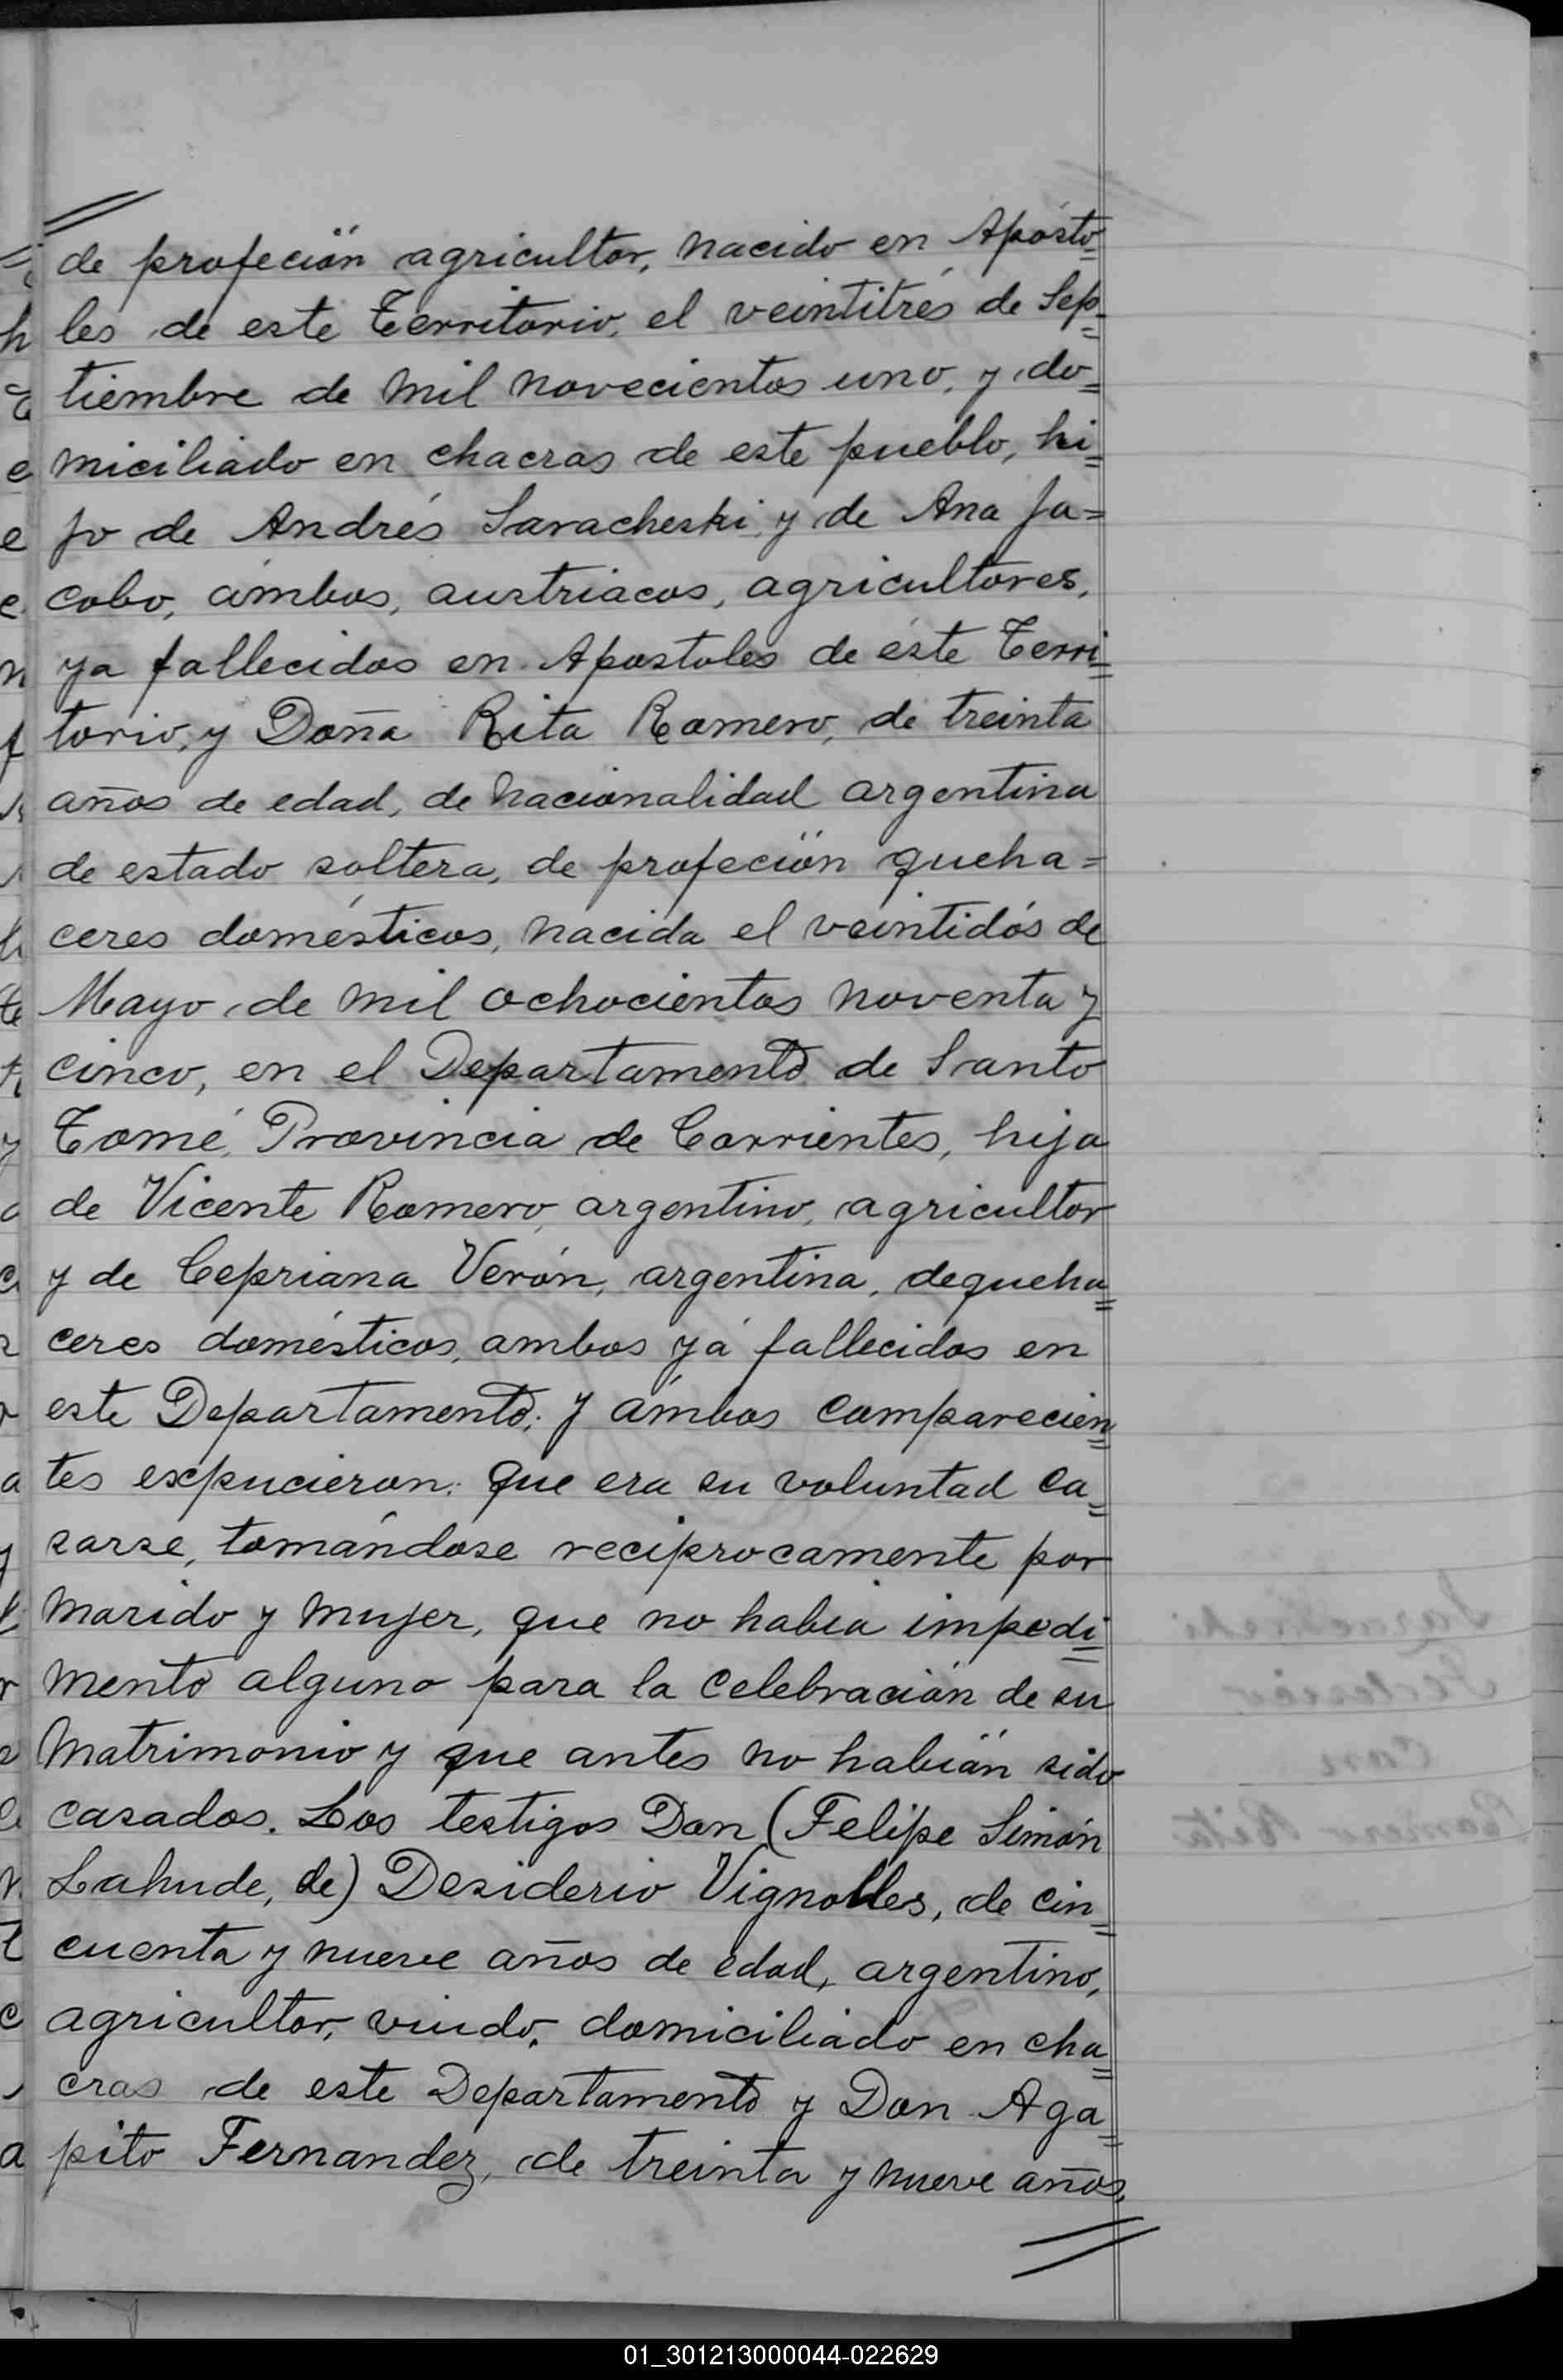 de profeción agricultor, nacido en Aposto=
les de este Territorio, el veintitrés de Sep=
tiembre de mil novecientos uno, y do=
miciliado en chacras de este pueblo, hi=
jo de Andrés Saracheski y de Ana Ja=
cobo, ámbos, austriacos, agricultores,
ya fallecidos en Apostoles de éste Terri=
torio, y Doña Rita Romero, de treinta
años de edad, de nacionalidad argentina
de estado soltera, de profeción queha=
ceres domésticos, nacida el veintidós de
Mayo de mil ochocientos noventa y
cinco, en el Departamento de Santo
Tomé, Provincia de Corrientes, hija
de Vicente Romero, argentino, agricultor
y de Cepriana Verón, argentina, de queha=
ceres domésticos, ambos yá fallecidos en
este Departamento; y ámbos comparecien=
tes expucieron: que era su voluntad ca=
sarse, tomándose reciprocamente por
marido y mujer, que no habia impedi=
mento alguno para la celebración de su
matrimonio y que antes no habián sido
casados. Los testigos Don (Felipe Simón
Lahude, de) Desiderio Vignolles, de cin=
cuenta y nueve años de edad, argentino,
agricultor, viudo, domiciliado en cha=
cras de este Departamento y Don Aga=
pito Fernandez, de treinta y nueve años,
01_301213000044-022629